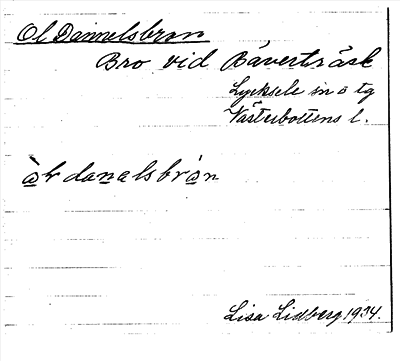 Ol Dannelsbron
Bro vid Bäverträsk
Lycksele sn o tg
Västerbottens l.
òl danalsbròn
Lisa Lidberg 1934.